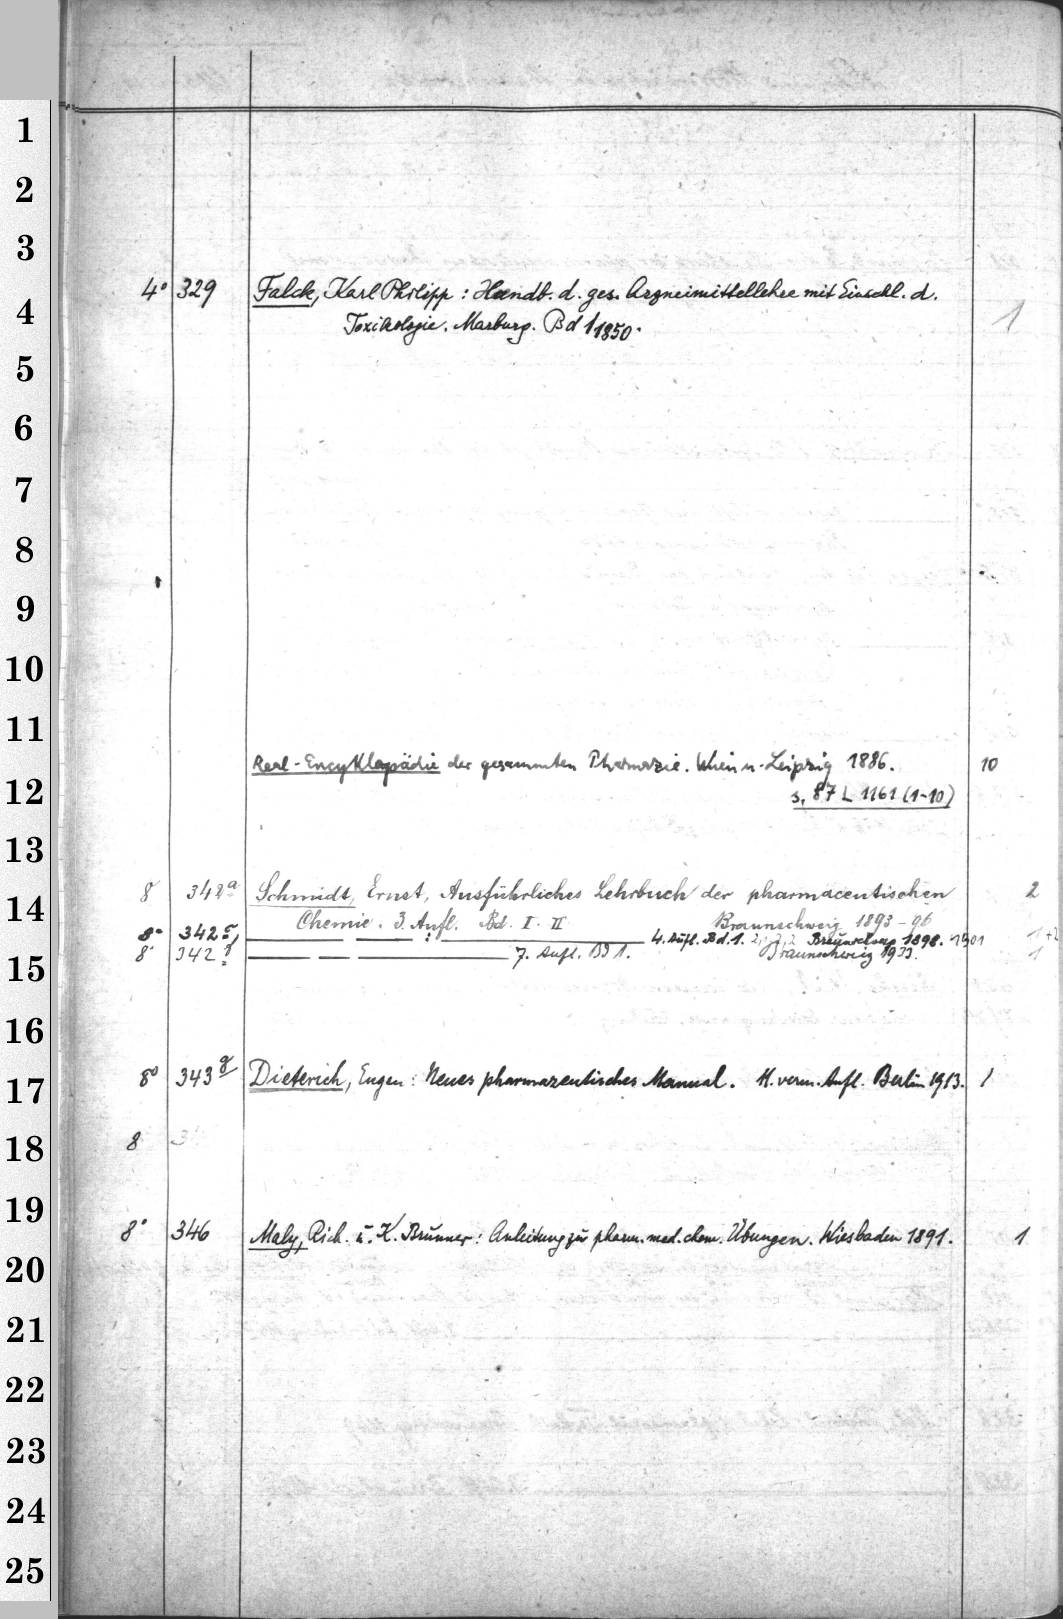 1
2
3
4° 329 Falck, Karl Philipp: Handb. d. ges. Arzneimittellehre mit Einschl. d.
4
Toxikologie. Marburg. Bd 1 1850. 1
5
6
7
8
9
10
11
Real-Encyklopädie der gesammten Pharmazie. Wien u. Leipzig 1886. 10
12
s. 87 L 1161 (1-10)
13
8 342a Schmidt, Ernst, Ausführliches Lehrbuch der pharmaceutischen 2
14
Chemie. 3. Aufl. Bd. I. II Braunschweig 1893-96
8° 342 4. Aufl. Bd. 1. 2,1 2,2 Braunschweig 1898. 1901 1+2
8° 342 7. Aufl. Bd 1. Braunschweig 1933. 1
15
16
8° 343g Dieterich, Eugen: Neues pharmazeutisches Manual. 11. verm. Aufl. Berlin 1913. 1
17
8 3
18
19
8° 346 Maly, Rich. u. K. Brunner: Anleitung zu pharm. med. chem. Übungen. Wiesbaden 1891. 1
20
21
22
23
24
25